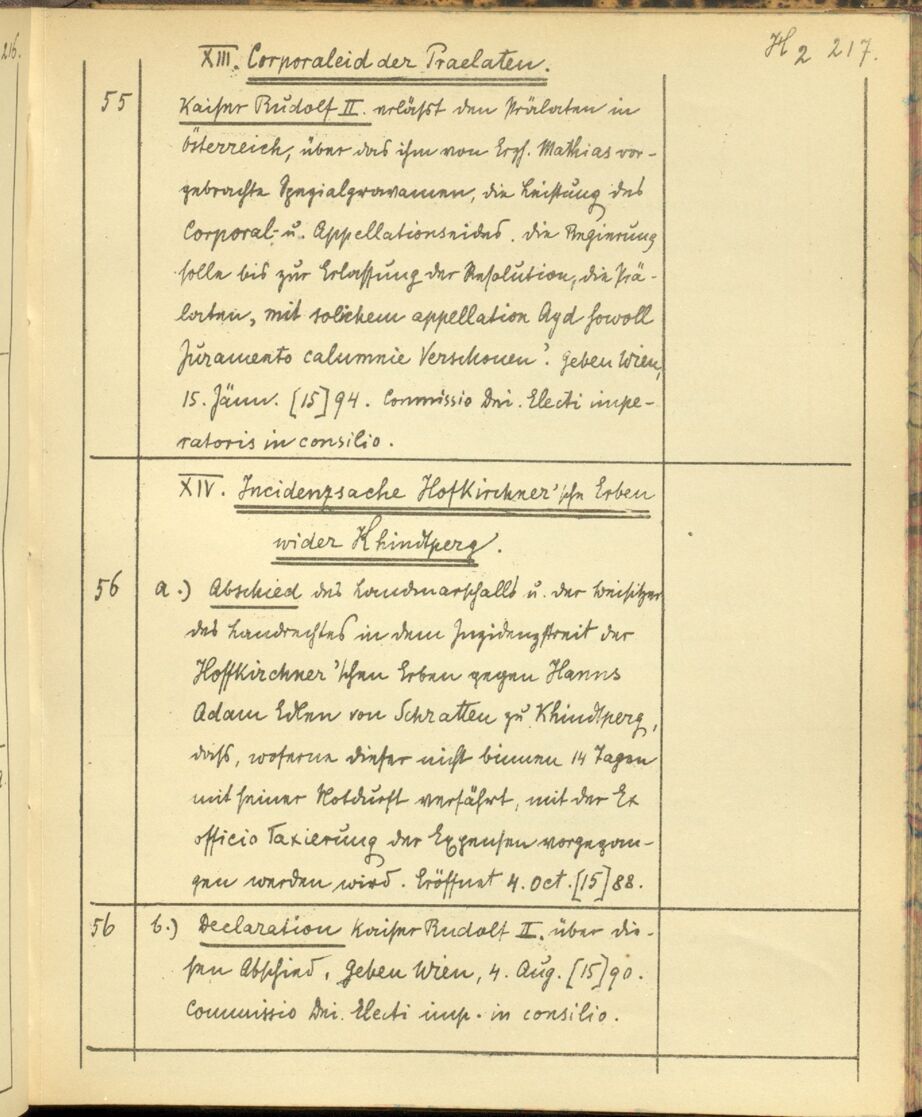 216.
H2 217.
XIII. Corporaleid der Praelaten.
55 Kaiser Rudolf II. erläßt den Prälaten in
Österreich, über das ihm von Erzh. Mathias vor-
gebrachte Spezialgravamen, die Leistung des
Corporal- u. Appellationseides. Die Regierung
solle bis zur Erlassung der Resolution, die Prä-
laten, „mit solichem appellation Ayd sowoll
Juramento calumnie Verschonen“. Geben Wien,
15. Jänn. [15]94. Commissio Dni. Electi impe-
ratoris in consilio.
XIV. Incidenzsache Hofkirchner'sche Erben
wider Khindtperg.
56 a.) Abschied des Landmarschalls u. der Beisitzer
des Landrechtes in dem Inzidenzstreit der
Hoffkirchner'schen Erben gegen Hanns
Adam Edlen von Schratten zu Khindtperg,
daß, woferne dieser nicht binnen 14 Tagen
mit seiner Notdurft verfährt, mit der Ex
officio Taxierung der Expensen vorgegan-
gen werden wird. Eröffnet 4. Oct. [15]88.
56 b.) Declaration Kaiser Rudolf II. über die-
sen Abschied. Geben Wien, 4. Aug. [15]90.
Commissio Dni. Electi imp. in consilio.